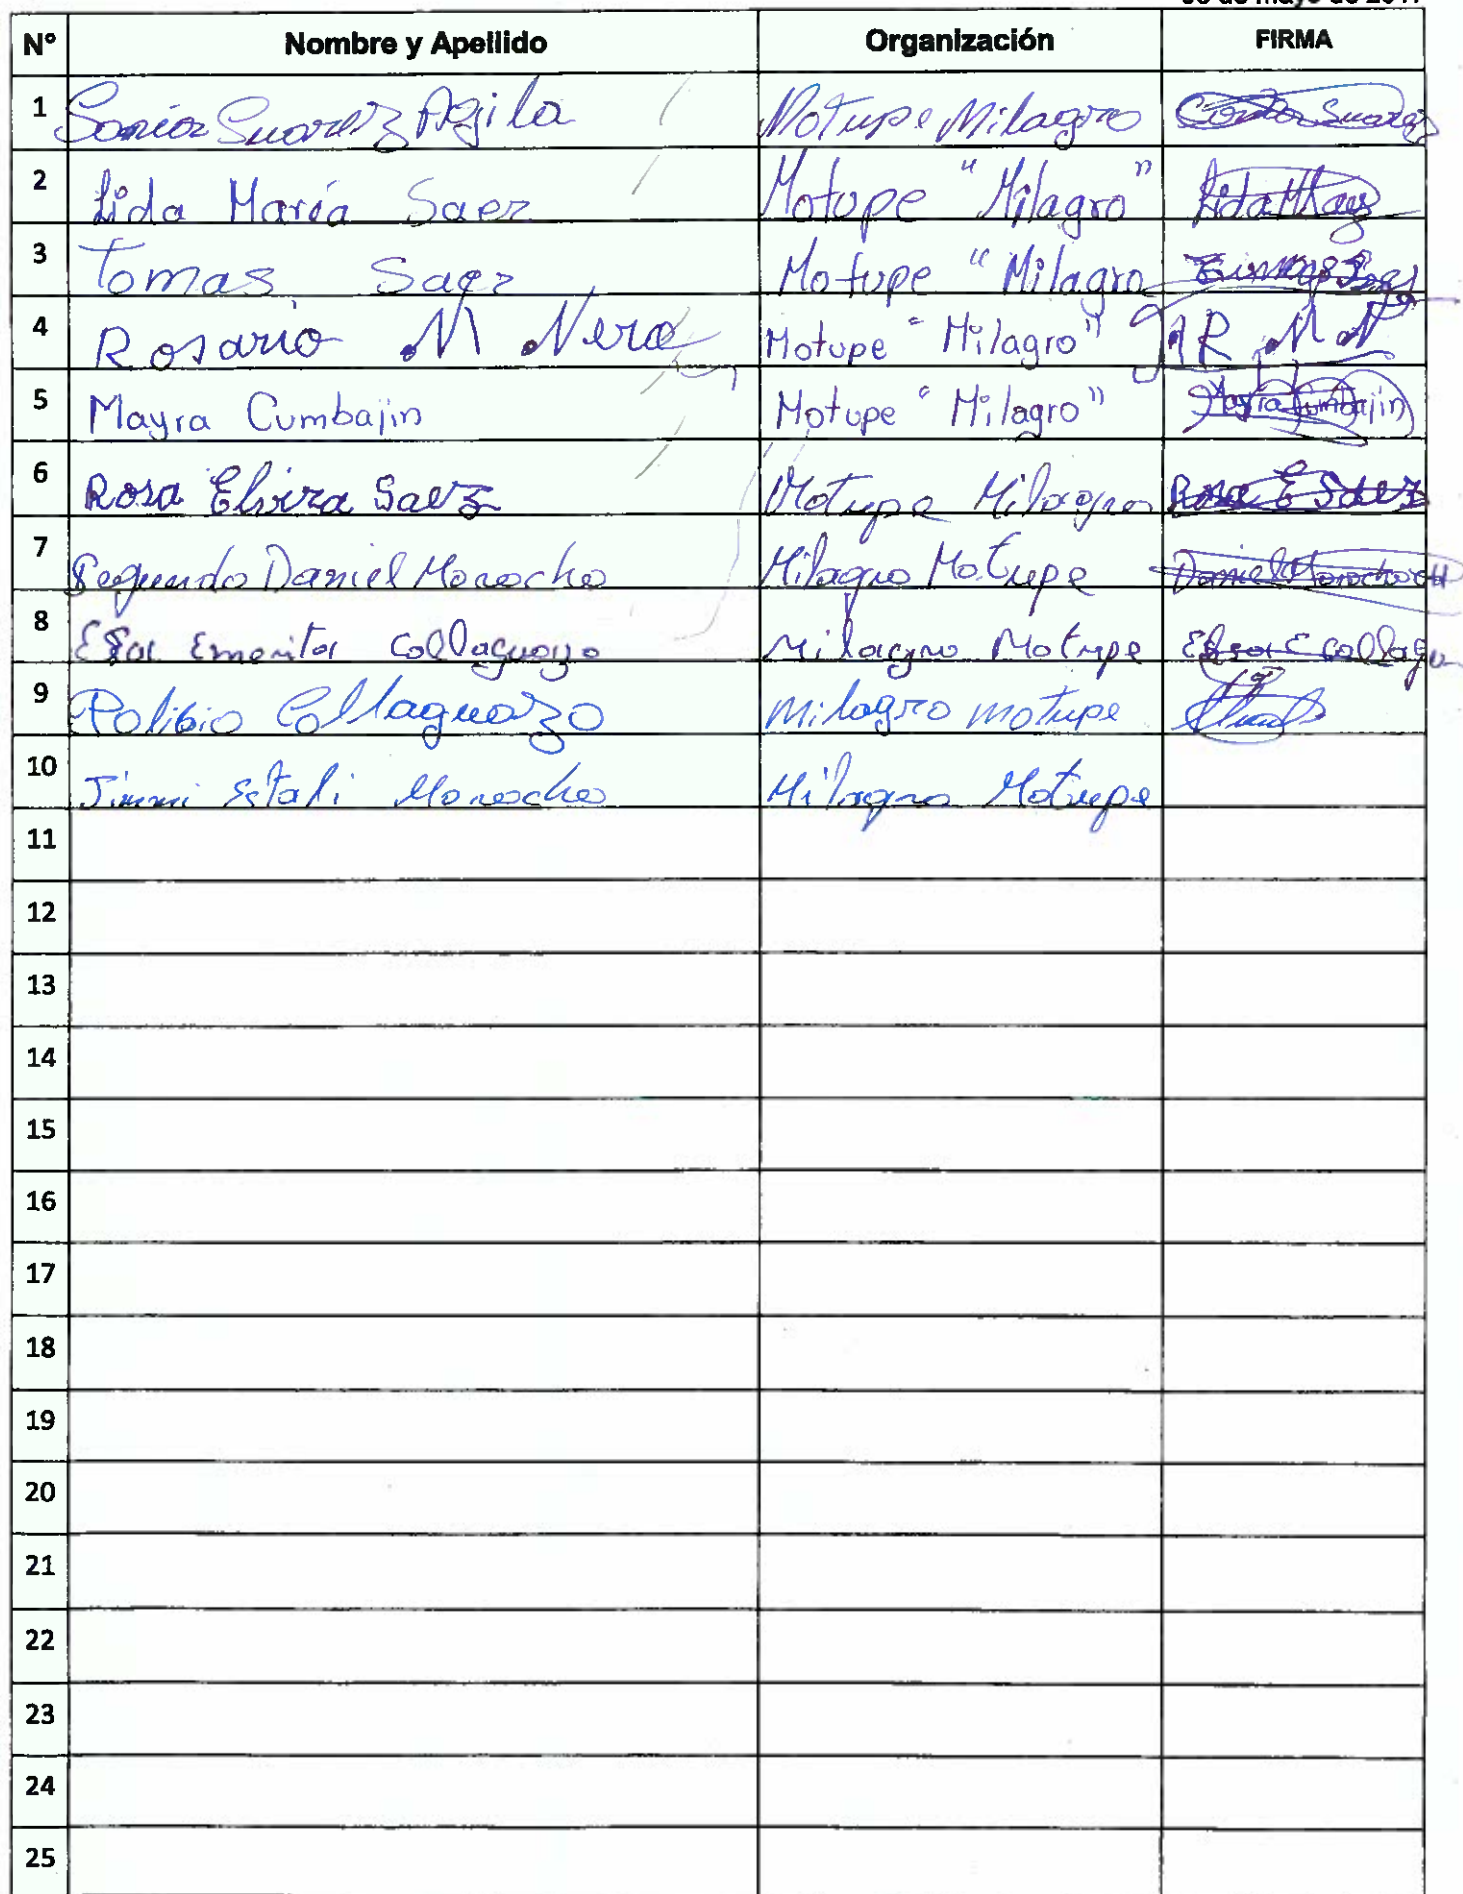 de mayo de
Nº Nombre y Apellido Organización FIRMA
1 Sonia Suarez Agila Motupe Milagro Suarez
2 Lida María Saez Motupe "Milagro"
3 Tomas Saez Motupe "Milagro
4 Rosario M Nera Motupe "Milagro" R M N
5 Mayra Cumbajin Motupe "Milagro" Mayra Cumbajin
6 Rosa Elvira Saez Motupe Milagro Rosa E Saez
7 Segundo Daniel Morocho Milagro Motupe Daniel Morocho
8 Emerita Collaguazo Milagro Motupe
9 Polibio Collaguazo milagro motupe
10 Jimmi Morocho Milagro Motupe
11
12
13
14
15
16
17
18
19
20
21
22
23
24
25